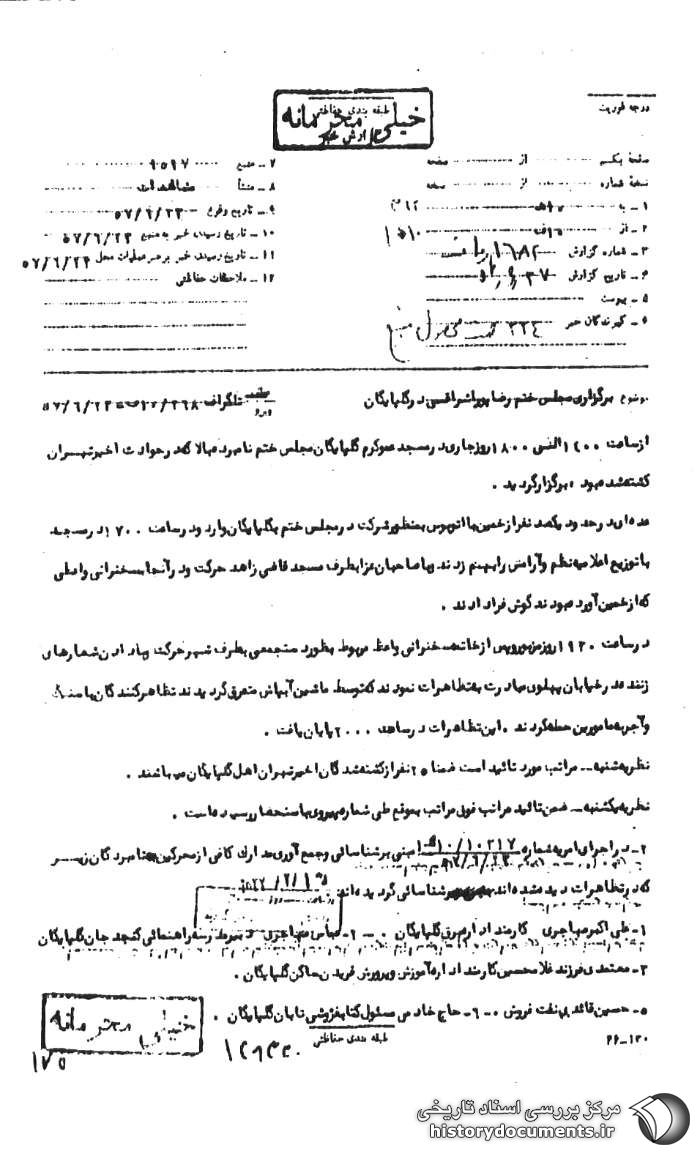 درجه فوریت
طبقه بندی حفاظتی
خیلی محرمانه
گزارش خبر
صفحه یکم از صفحه
نسخه شماره از نسخه
۱ ــ به
۲ ــ از
۳ ــ شماره گزارش ۱۶۸۲
۴ ــ تاریخ گزارش
۵ ــ پیوست
۶ ــ گیرندگان خبر ۳۳۴
۷ ــ منبع ۹۵۹۷
۸ ــ منشأ مشاهدات
۹ ــ تاریخ وقوع ۵۷/۶/۲۳
۱۰ ــ تاریخ رسیدن خبر به منبع ۵۷/۶/۲۳
۱۱ ــ تاریخ رسیدن خبر به رهبر عملیات محل ۵۷/۶/۲۴
۱۲ ــ ملاحظات حفاظتی
موضوع برگزاری مجلس ختم رضا پوراشراقی در گلپایگان
پیرو تلگراف
از ساعت الی ۱۸۰۰ روز جاری در مسجد گلپایگان مجلس ختم نامبرده بالا که در حوادث اخیر تهران
کشته شده بود ، برگزار گردید .
عده‌ای در حدود یکصد نفر از خمین با اتوبوس بمنظور شرکت در مجلس ختم به گلپایگان وارد و در ساعت ۱۷۰۰ در مسجد
با توزیع اعلامیه نظم و آرامش را بهم زدند و با صاحبان عزا بطرف مسجد قاضی زاهد حرکت و در آنجا به سخنرانی واعظی
که از خمین آورده بودند گوش فرا دادند .
در ساعت ۱۹۲۰ روز مزبور پس از خاتمه سخنرانی واعظ مربوط بطور دسته جمعی بطرف شهر حرکت و با دادن شعارهای
زننده در خیابان پهلوی مبادرت به تظاهرات نمودند که توسط ماشین آبپاش متفرق گردیدند تظاهرکنندگان با سنگ
و آجر به مامورین حمله کردند . این تظاهرات در ساعت ۲۰۰۰ پایان یافت .
نظریه شنبه ــ مراتب مورد تائید است ضمنا ۲۵ نفر از کشته شدگان اخیر تهران اهل گلپایگان میباشند .
نظریه یکشنبه ــ ضمن تائید مراتب فوق مراتب بموقع طی شماره پیروی باستحضار رسیده است .
۲ ــ در اجرای امریه شماره مبنی بر شناسائی و جمع آوری مدارک کافی از محرکین نامبردگان زیر
که در تظاهرات دیده شده‌اند شناسائی گردیده‌اند
۱ ــ علی اکبر مهاجری کارمند اداره برق گلپایگان . ــ ۲ ــ عباس مدرسه راهنمائی کنجد جان گلپایگان
۳ ــ معتمدی فرزند غلامحسین کارمند اداره آموزش و پرورش فریدن ساکن گلپایگان .
۵ ــ حسین نفت فروش ۰ ــ ۶ ــ حاج خادمی مسئول کتابفروشی تابان گلپایگان .
طبقه بندی حفاظتی
۶۶ــ۱۳۰
خیلی محرمانه
۱۷۵
مرکز بررسی اسناد تاریخی
historydocuments.ir